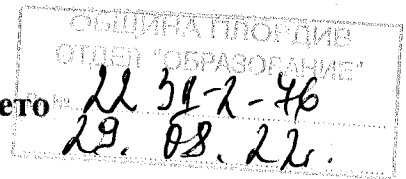 ОБЩИНА ПЛОВДИВ
ОТДЕЛ "ОБРАЗОВАНИЕ"
ето 22
29. 08. 22г.